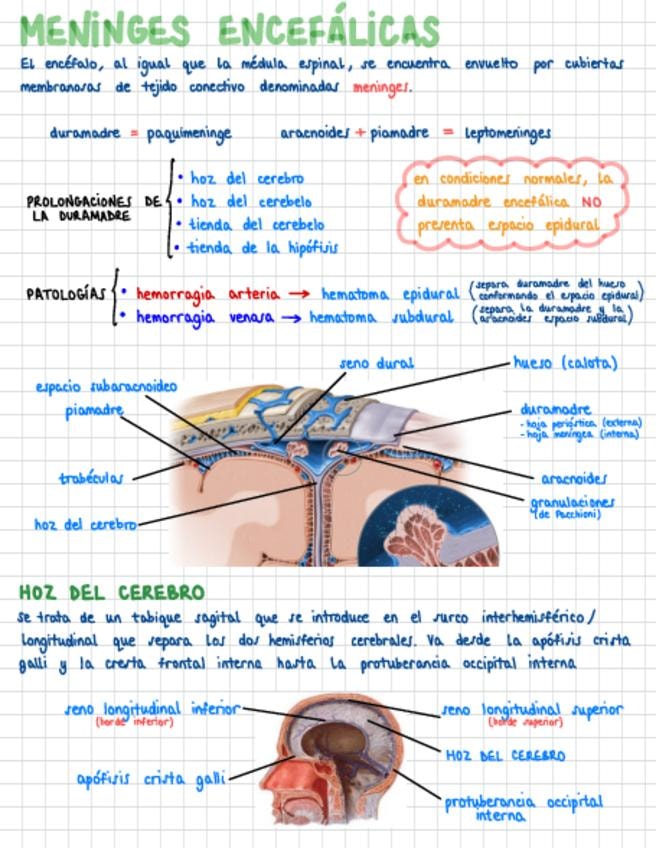 MENINGES ENCEFÁLICAS
El encéfalo, al igual que la médula espinal, se encuentra envuelto por cubiertas
membranosas de tejido conectivo denominadas meninges.
duramadre = paquimeninge aracnoides + piamadre = leptomeninges
PROLONGACIONES DE
LA DURAMADRE
• hoz del cerebro
• hoz del cerebelo
• tienda del cerebelo
• tienda de la hipófisis
en condiciones normales, la
duramadre encefálica NO
presenta espacio epidural
PATOLOGÍAS
• hemorragia arteria → hematoma epidural (separa duramadre del hueso
conformando el espacio epidural)
• hemorragia venosa → hematoma subdural (separa la duramadre y la
aracnoides espacio subdural)
seno dural
hueso (calota)
espacio subaracnoideo
piamadre
duramadre
- hoja perióstica (externa)
- hoja meníngea (interna)
trabéculas
aracnoides
granulaciones
(de Pacchioni)
hoz del cerebro
HOZ DEL CEREBRO
se trata de un tabique sagital que se introduce en el surco interhemisférico/
longitudinal que separa los dos hemisferios cerebrales. Va desde la apófisis crista
galli y la cresta frontal interna hasta la protuberancia occipital interna
seno longitudinal inferior
(borde inferior)
seno longitudinal superior
(borde superior)
HOZ DEL CEREBRO
apófisis crista galli
protuberancia occipital
interna